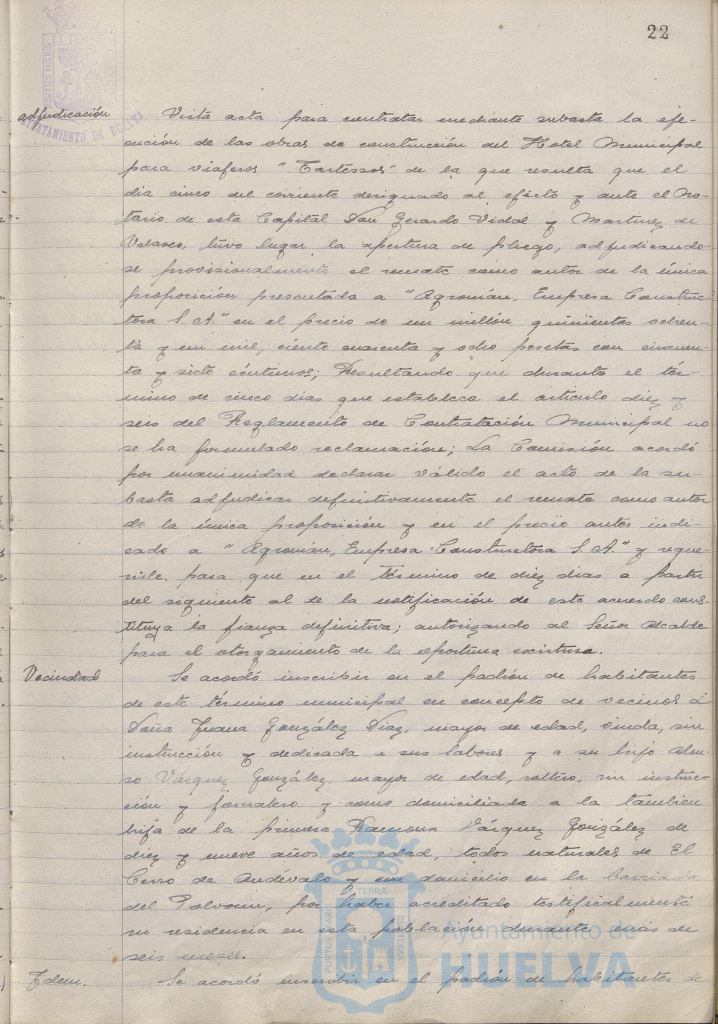 22
adjudicación
Vista acta para contratar mediante subasta la eje-
cución de las obras de construcción del Hotel Municipal
para viajeros "Tartessos" de la que resulta que el
dia cinco del corriente designado al efecto y ante el No-
tario de esta Capital Don Gerardo Vidal y Martinez de
Velasco, tuvo lugar la apertura de pliego, adjudicando-
se provisionalmente el remate como autor de la única
proposición presentada a "Agroman, Empresa Construc-
tora S.A." en el precio de un millón quinientas ochen-
ta y un mil, ciento cuarenta y ocho pesetas con cincuen-
ta y siete céntimos; Resultando que durante el tér-
mino de cinco dias que establece el articulo diez y
seis del Reglamento de Contratación Municipal no
se ha formulado reclamación; La Comisión acordó
por unanimidad declarar válido el acto de la su-
basta adjudicar definitivamente el remate como autor
de la única proposición y en el precio antes indi-
cado a "Agromán, Empresa Constructora S.A." y reque-
rirle para que en el término de diez dias a partir
del siguiente al de la notificación de este acuerdo cons-
tituya la fianza definitiva; autorizando al Señor Alcalde
para el otorgamiento de la oportuna escritura.
Vecindad
Se acordó inscribir en el padrón de habitantes
de este término municipal en concepto de vecinos á
Doña Juana González Diaz, mayor de edad, viuda, sin
instrucción y dedicada a sus labores y a su hijo Alon-
so Vázquez González, mayor de edad, soltero, sin instruc-
ción y jornalero y como domiciliada a la tambien
hija de la primera Ramona Vázquez González de
diez y nueve años de edad, todos naturales de El
Cerro de Andévalo y con domicilio en la barriada
del Polvorin, por haber acreditado testificalmente
su residencia en esta población durante más de
seis meses.
Idem.
Se acordó inscribir en el padrón de habitantes de
PORTUS MARIS
AYUNTAMIENTO DE HUELVA
PORTUS MARIS ET TERRAE CUSTODIA
Ayuntamiento de
HUELVA